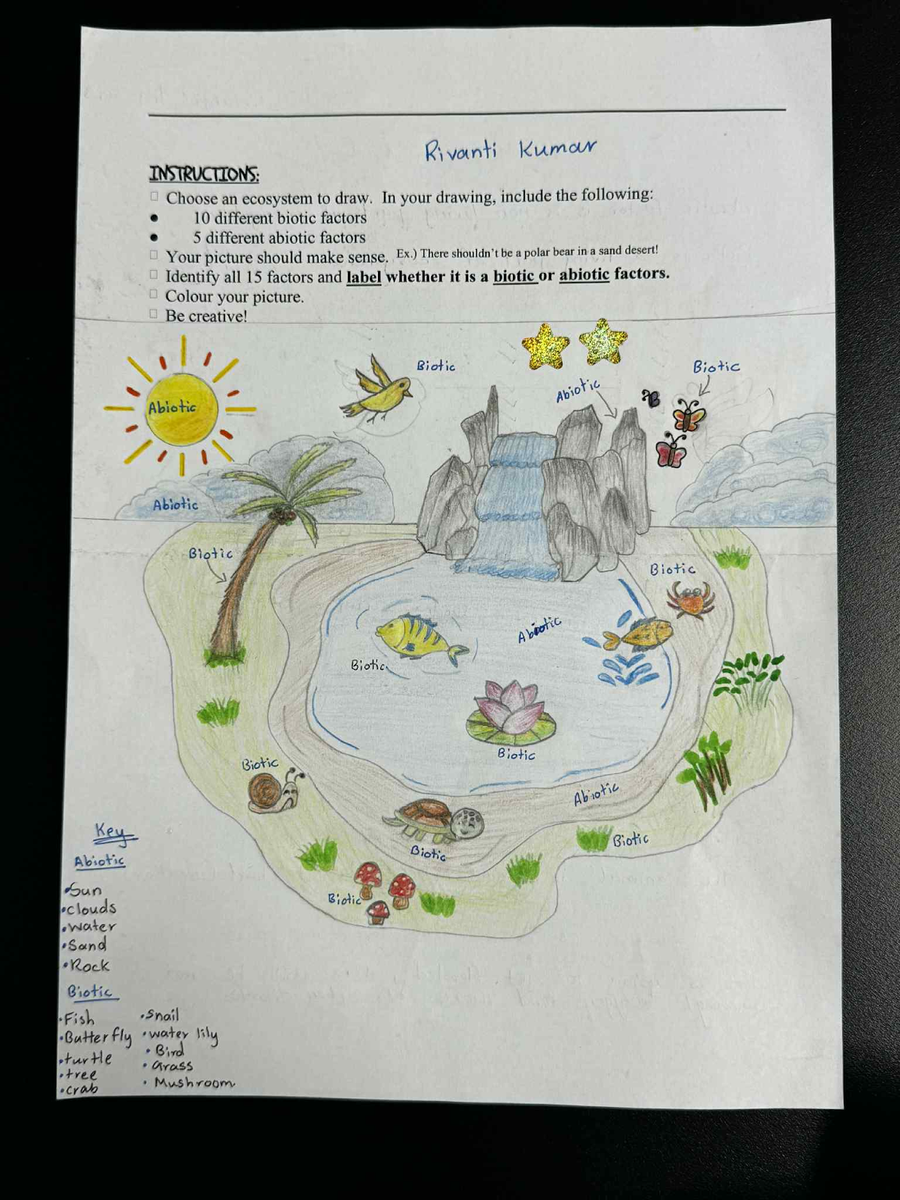 Rivanti Kumar
INSTRUCTIONS:
Choose an ecosystem to draw. In your drawing, include the following:
• 10 different biotic factors
• 5 different abiotic factors
Your picture should make sense. Ex.) There shouldn't be a polar bear in a sand desert!
Identify all 15 factors and label whether it is a biotic or abiotic factors.
Colour your picture.
Be creative!
Biotic
Biotic
Abiotic
Abiotic
Abiotic
Biotic
Biotic
Abiotic
Biotic
Biotic
Biotic
Abiotic
Biotic
Biotic
Biotic
Key
Abiotic
•Sun
•clouds
•water
•Sand
•Rock
Biotic
•Fish •Snail
•Butterfly •water lily
•turtle • Bird
•tree • Grass
•crab • Mushroom